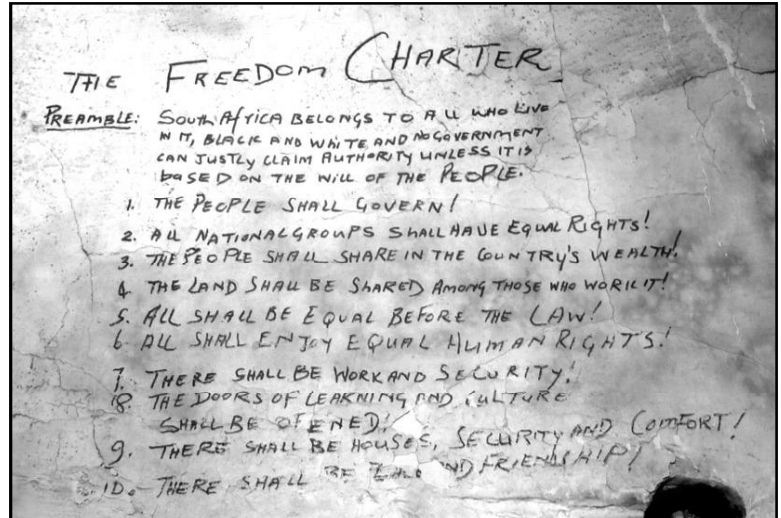 THE FREEDOM CHARTER
PREAMBLE: SOUTH AFRICA BELONGS TO ALL WHO LIVE
IN IT, BLACK AND WHITE AND NO GOVERNMENT
CAN JUSTLY CLAIM AUTHORITY UNLESS IT IS
BASED ON THE WILL OF THE PEOPLE.
1. THE PEOPLE SHALL GOVERN!
2. ALL NATIONAL GROUPS SHALL HAVE EQUAL RIGHTS!
3. THE PEOPLE SHALL SHARE IN THE COUNTRY'S WEALTH!
4. THE LAND SHALL BE SHARED AMONG THOSE WHO WORK IT!
5. ALL SHALL BE EQUAL BEFORE THE LAW!
6. ALL SHALL ENJOY EQUAL HUMAN RIGHTS!
7. THERE SHALL BE WORK AND SECURITY!
8. THE DOORS OF LEARNING AND CULTURE
SHALL BE OPENED!
9. THERE SHALL BE HOUSES, SECURITY AND COMFORT!
10. THERE SHALL BE AND FRIENDSHIP!